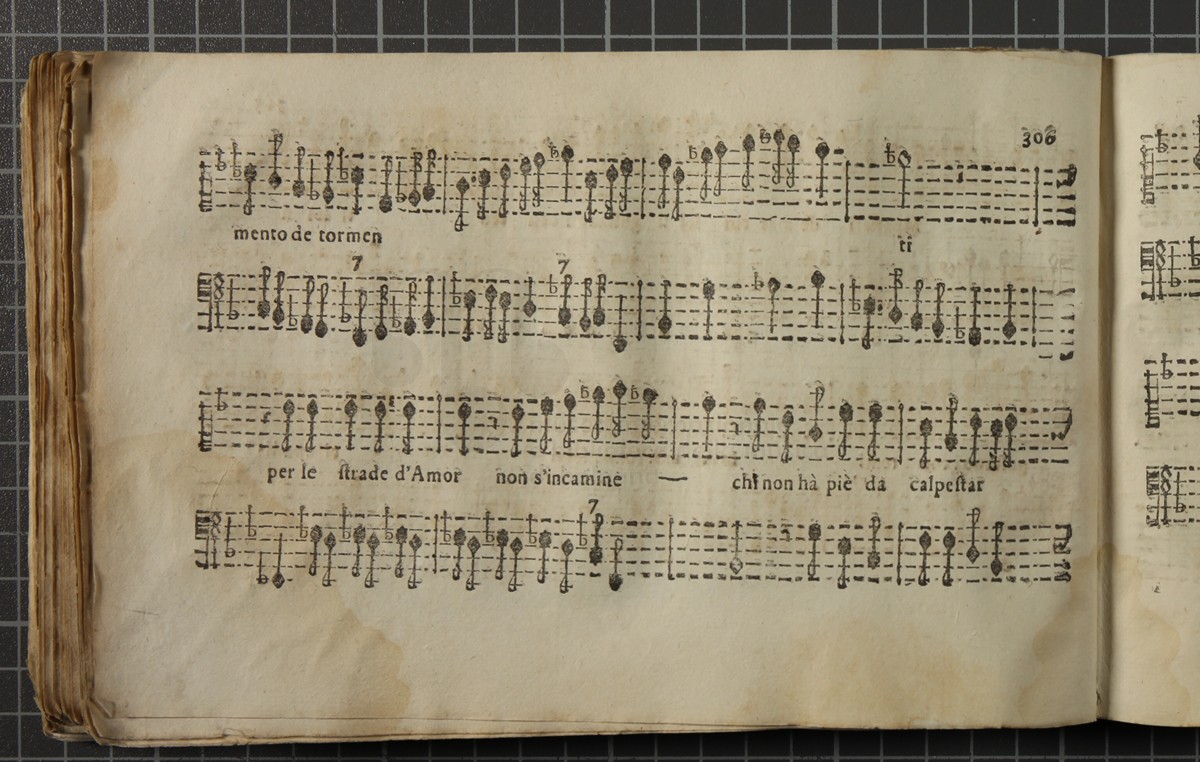 306
mento de tormen ti
7 7
per le ſtrade d'Amor non s'incamine — chi non hà piè da calpeſtar
7